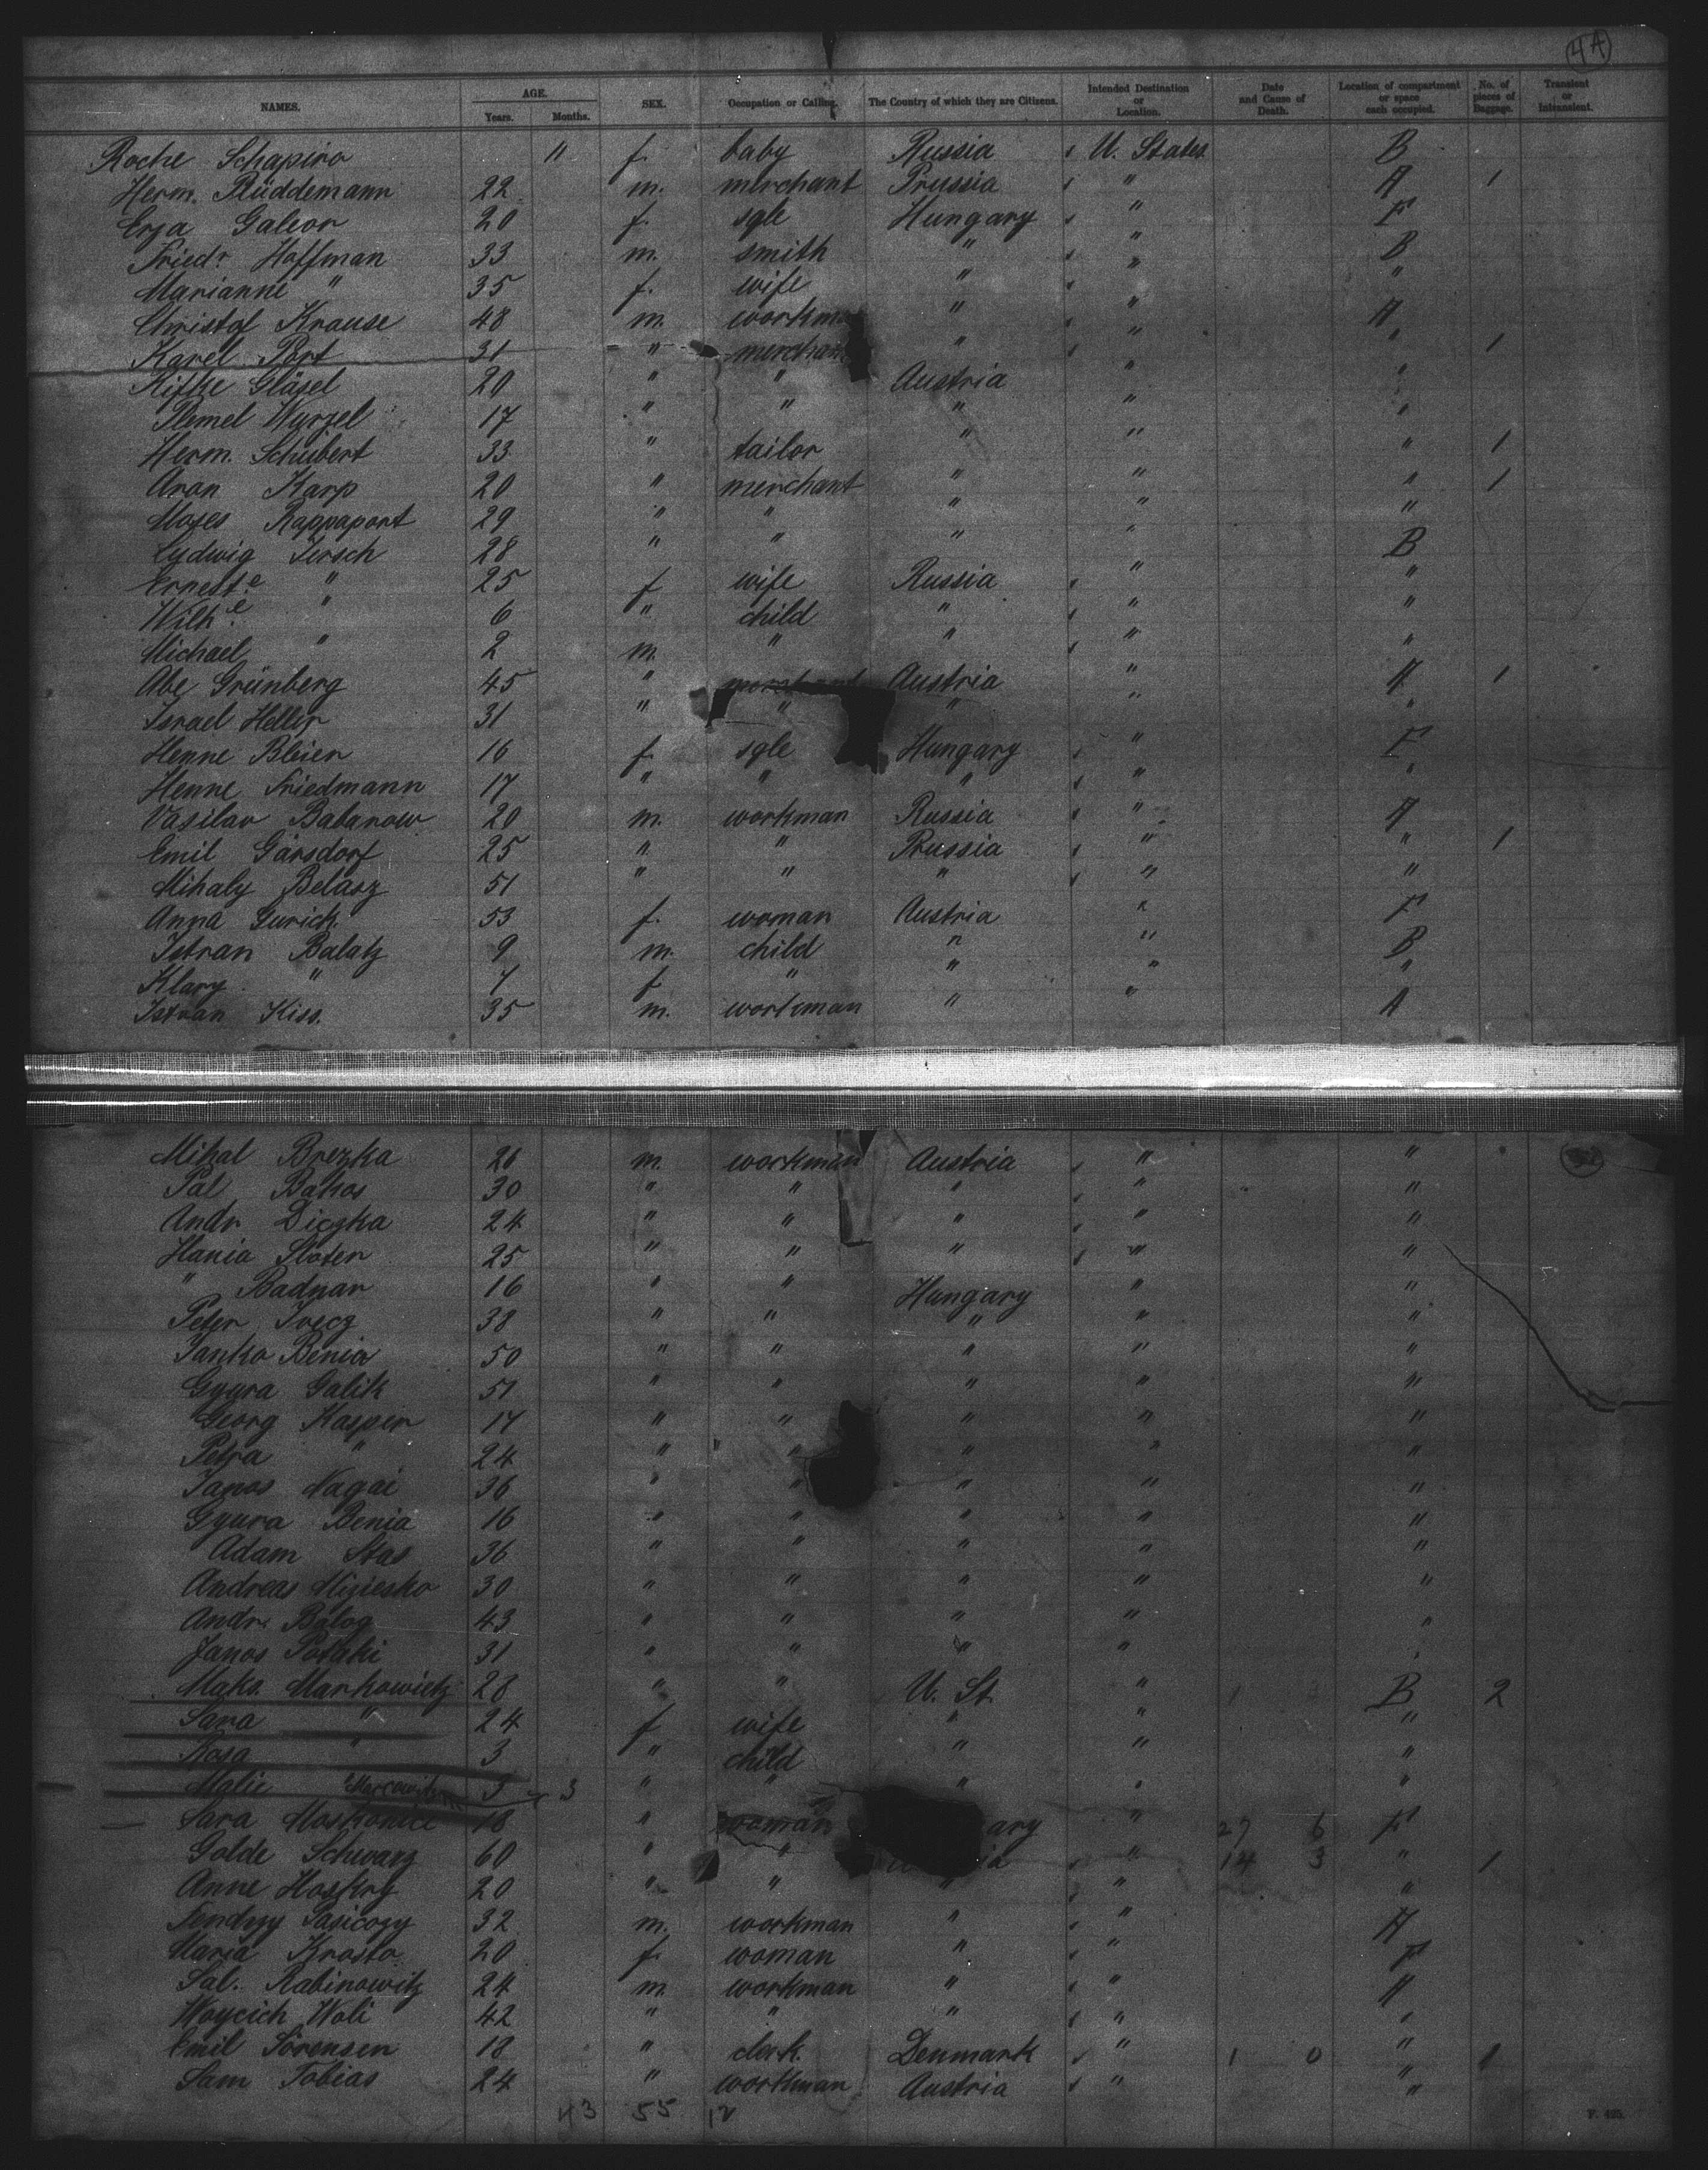 4A
NAMES. AGE. Years. Months. SEX. Occupation or Calling. The Country of which they are Citizens. Intended Destination or Location. Date and Cause of Death. Location of compartment or space each occupied. No. of pieces of Baggage. Transient or Intransient.
Roche Schapiro 11 f. baby Russia U. States B
Herm. Rüddemann 22 m. merchant Prussia " A 1
Erza Galeor 20 f. sgle Hungary " F
Friedr. Hoffman 33 m. smith " " B
Marianne " 35 f. wife " " "
Christof Krause 48 m. workm " " A
Karel Port 31 " merchan " " " 1
Rifke Gläsel 20 " " Austria " "
Wurzel 17 " " " " "
Herm. Schubert 33 " tailor " " " 1
Aron Karp 20 " merchant " " " 1
Moses Rappaport 29 " " " " "
Ludwig Jersch 28 " " " " B
Ernest.e " 25 f wife Russia " "
Wilh.e " 6 " child " " "
Michael " 2 m. " " " "
Abe Grünberg 45 " merchant Austria " A 1
Israel Heller 31 " " " " "
Henne Bleier 16 f. sgle Hungary " F
Henne Friedmann 17 " " " " "
Vasilav Babanow 20 m. workman Russia " A
Emil Garsdorf 25 " " Prussia " " 1
Mihaly Belasz 51 " " " " "
Anna Gurich 53 f. woman Austria " F
Istvan Balatz 9 m. child " " B
Klary " 7 f " " " "
Istvan Kiss. 35 m. workman " " A
Mihal Brezka 26 m. workman Austria " "
Pal Bakos 30 " " " " "
Andr. Diczka 24 " " " " "
Hania Sloten 25 " " " " "
" Badnar 16 " " Hungary " "
Peter Ivecz 38 " " " " "
Janko Benia 50 " " " " "
Gyura Galik 51 " " " " "
Georg Kasper 17 " " " " "
Petra " 24 " " " " "
Janos Nagai 36 " " " " "
Gyura Benia 16 " " " " "
Adam Stas 36 " " " " "
Andreas Migiesko 30 " " " " "
Andr. Balog 43 " " " " "
Janos Potaki 31 " " " " "
Maks. Markowietz 28 " " U. St. " B 2
Sara " 24 f wife " " "
Rosa " 3 " child " " "
Malie Marcowitz 3 " " " " "
Sara Moskowitz 18 " woman ary " 27 6 F
Golde Schwarz 60 " " ia " 14 3 " 1
Anne Hoskry 20 " " " " "
Jendrzy Pasicozy 32 m. workman " " A
Maria Krosto 20 f. woman " " F
Sal. Rabinowitz 24 m. workman " " A
Woycich Woli 42 " " " " "
Emil Sörensen 18 " clerk. Denmark " 1 0 " 1
Sam Tobias 24 " workman Austria " "
43 55 12